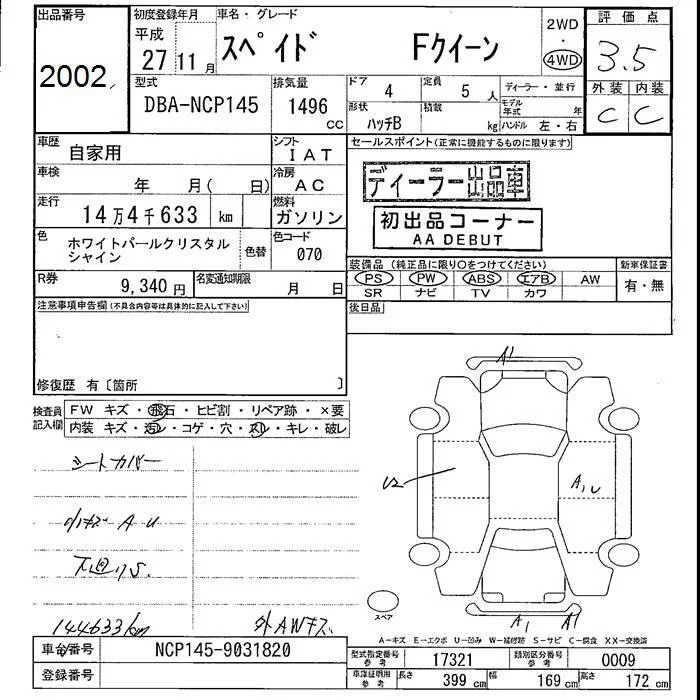 出品番号
2002
初度登録年月
平成
27 11月
車名・グレード
スペイド Fクイーン
2WD
・
4WD
評価点
3.5
外装 内装
C C
型式
DBA-NCP145
排気量
1496
CC
ドア
4
定員
5 人
形状
ハッチB
積載
kg
ディーラー・並行
モデル年式 年
ハンドル 左・右
車歴
自家用
シフト
IAT
車検
年 月( 日)
冷房
AC
走行
14万4千633 km
燃料
ガソリン
色
ホワイトパールクリスタル
シャイン
色替
色コード
070
R券
9,340円
名変通知期限
月 日
セールスポイント(正常に機能するものに限ります)
ディーラー出品車
初出品コーナー
AA DEBUT
装備品(純正品に限り○をつけてください)
PS PW ABS エアB AW
SR ナビ TV カワ
新車保証書
有・無
後日品
注意事項申告欄(不具合内容等は具体的に記入して下さい)
修復歴 有〔箇所 〕
検査員
記入欄
FW キズ・飛石・ヒビ割・リペア跡・×要
内装 キズ・汚レ・コゲ・穴・スレ・キレ・破レ
シートカバー
小キズ A U
下廻りS.
144633km
外AWキズ
A1
U2
A1 U
A1 A1
スペア
A-キズ E-エクボ U-凹み W-補修跡 S-サビ C-腐食 XX-交換済
車台番号
NCP145-9031820
登録番号
型式指定番号
参考
17321
類別区分番号
参考
0009
車庫証明用
参考
長さ
399 cm
幅
169 cm
高さ
172 cm